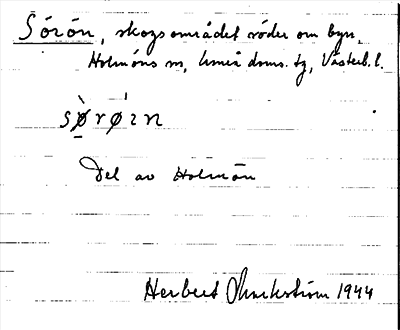 Sörön, skogsområdet söder om byn,
Holmöns sn, Umeå doms. tg, Västerb. l.
sø̀røɿn
Del av Holmön
Herbert Markström 1944